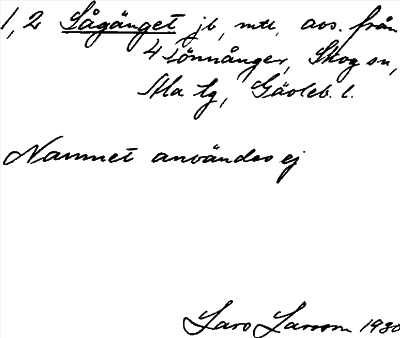 1, 2 Sågänget jb, mtl, avs. från
4 Lönnånger, Skog sn,
Ala tg, Gävleb. l.
Namnet användes ej
Lars Larsson 1930